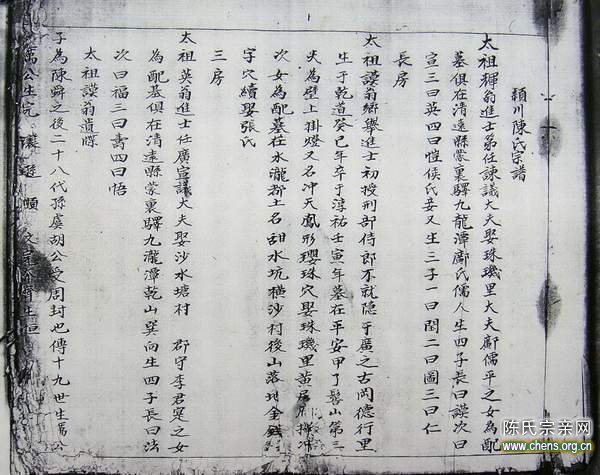 潁川陳氏宗譜
太祖輝翁進士第任諫議大夫娶珠璣里大夫鄺儒平之女為配
墓俱在清遠縣蒙裏驛九龍潭鄺氏儒人生四子長曰謹次曰
宣三曰英四曰愷侯氏妾又生三子一曰圖二曰圖三曰仁
長房
太祖謹翁鄉舉進士初授刑部侍郎不就隱于廣之古岡德行里
生于乾道癸巳年卒于淳祐壬寅年墓在平安甲了髻山第三
尖為壁上掛燈又名冲天鳳形瓔珠穴娶珠璣里黃居
次女為配墓在水瀧郡土名甜水坑橫沙村後山落地金錢
字穴續娶張氏
三房
太祖英翁進士任廣宣議大夫娶沙水塘村 郡守李君寔之女
為配墓俱在清遠縣蒙裏驛九瀧潭乾山巽向生四子長曰法
次曰福三曰壽四曰悟
太祖謹翁遺牒
子為陳舜之後二十八代孫虞胡公受周封也傳十九世生寓公
寓公生完
陈氏宗亲网
www.chens.org.cn